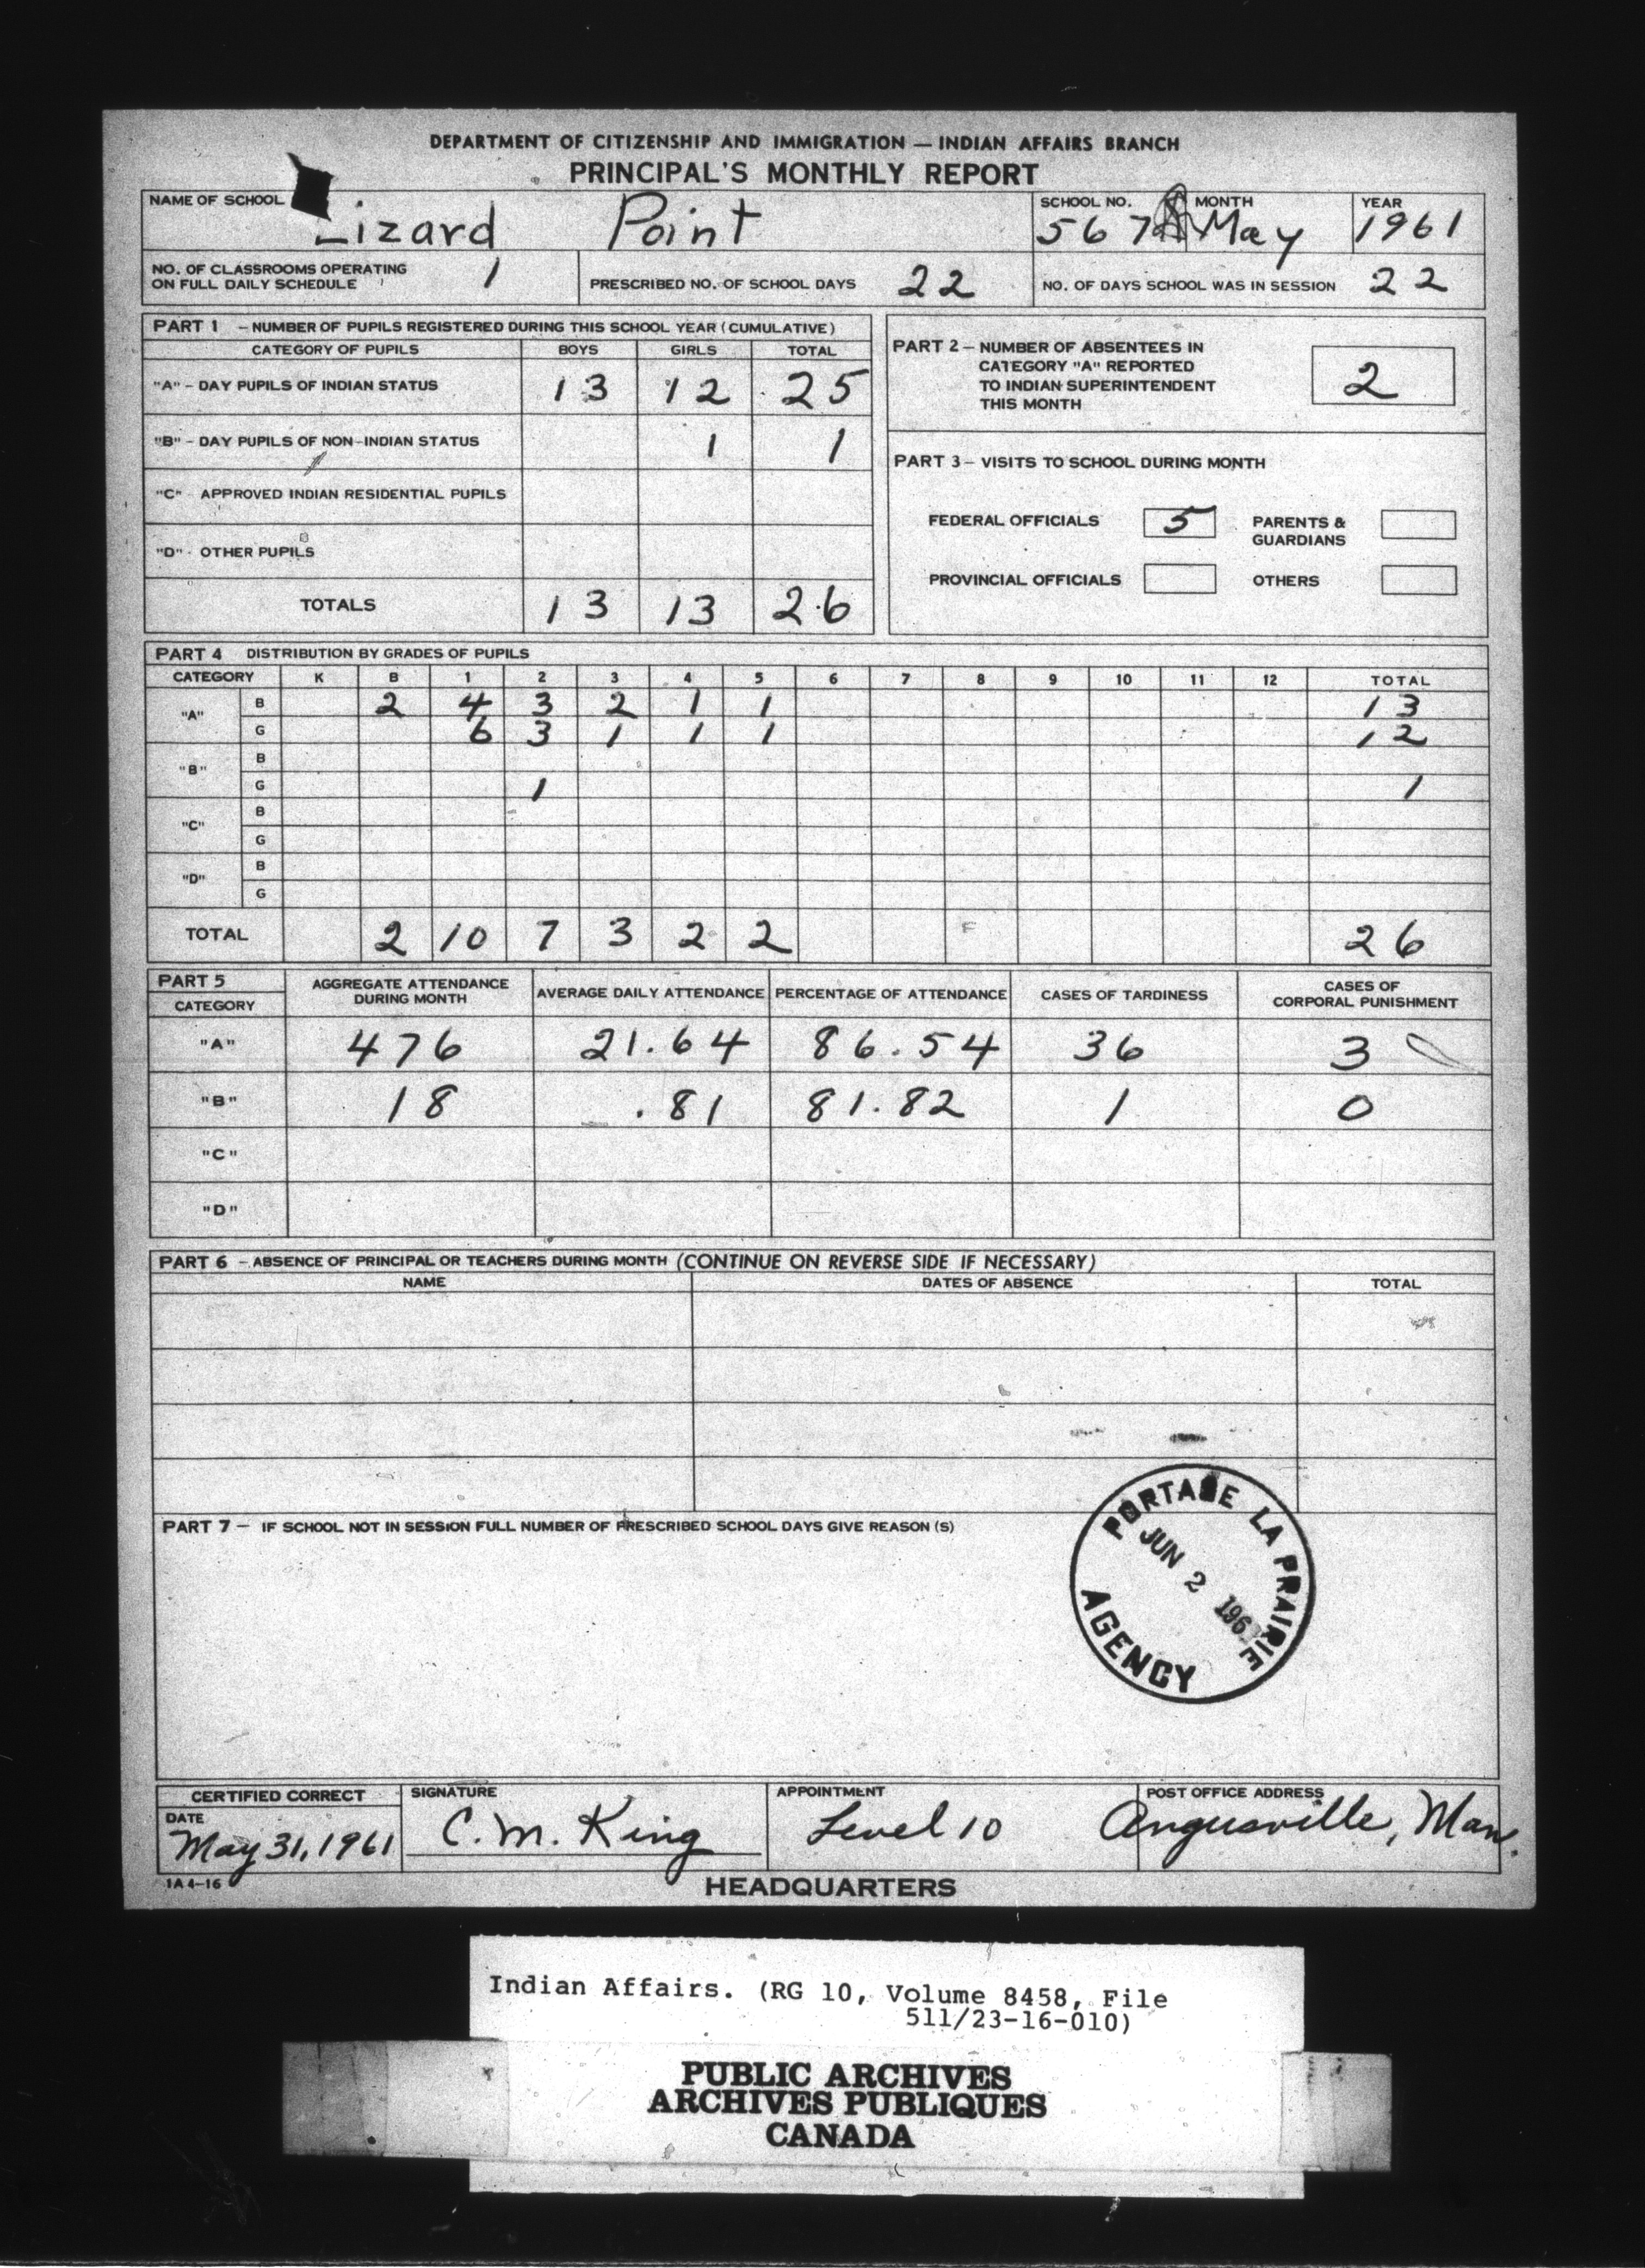 DEPARTMENT OF CITIZENSHIP AND IMMIGRATION — INDIAN AFFAIRS BRANCH
PRINCIPAL'S MONTHLY REPORT
NAME OF SCHOOL Lizard Point SCHOOL NO. 567 MONTH May YEAR 1961
NO. OF CLASSROOMS OPERATING ON FULL DAILY SCHEDULE 1 PRESCRIBED NO. OF SCHOOL DAYS 22 NO. OF DAYS SCHOOL WAS IN SESSION 22
PART 1 – NUMBER OF PUPILS REGISTERED DURING THIS SCHOOL YEAR (CUMULATIVE)
CATEGORY OF PUPILS BOYS GIRLS TOTAL
"A" – DAY PUPILS OF INDIAN STATUS 13 12 25
"B" – DAY PUPILS OF NON-INDIAN STATUS 1 1
"C" APPROVED INDIAN RESIDENTIAL PUPILS
"D" - OTHER PUPILS
TOTALS 13 13 26
PART 2 – NUMBER OF ABSENTEES IN
CATEGORY "A" REPORTED
TO INDIAN SUPERINTENDENT
THIS MONTH 2
PART 3 – VISITS TO SCHOOL DURING MONTH
FEDERAL OFFICIALS 5 PARENTS & GUARDIANS
PROVINCIAL OFFICIALS OTHERS
PART 4 DISTRIBUTION BY GRADES OF PUPILS
CATEGORY K B 1 2 3 4 5 6 7 8 9 10 11 12 TOTAL
"A" B 2 4 3 2 1 1 13
G 6 3 1 1 1 12
"B" B
G 1 1
"C" B
G
"D" B
G
TOTAL 2 10 7 3 2 2 26
PART 5
CATEGORY AGGREGATE ATTENDANCE DURING MONTH AVERAGE DAILY ATTENDANCE PERCENTAGE OF ATTENDANCE CASES OF TARDINESS CASES OF CORPORAL PUNISHMENT
"A" 476 21.64 86.54 36 3
"B" 18 .81 81.82 1 0
"C"
"D"
PART 6 – ABSENCE OF PRINCIPAL OR TEACHERS DURING MONTH (CONTINUE ON REVERSE SIDE IF NECESSARY)
NAME DATES OF ABSENCE TOTAL
PART 7 – IF SCHOOL NOT IN SESSION FULL NUMBER OF PRESCRIBED SCHOOL DAYS GIVE REASON(S)
PORTAGE LA PRAIRIE
JUN 2
AGENCY
CERTIFIED CORRECT SIGNATURE APPOINTMENT POST OFFICE ADDRESS
DATE
May 31, 1961 C. M. King Level 10 Angusville, Man.
1A4-16 HEADQUARTERS
Indian Affairs. (RG 10, Volume 8458, File
511/23-16-010)
PUBLIC ARCHIVES
ARCHIVES PUBLIQUES
CANADA